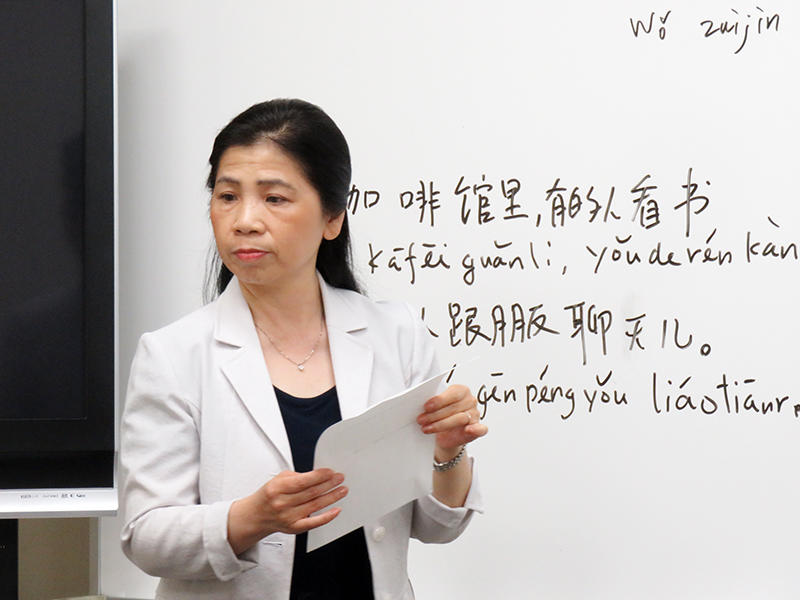 Wǒ zuijin
咖啡馆里,有的人看书
kāfēi guǎnli, yǒude rén kàn
人跟朋友聊天儿。
gēn péngyǒu liáotiānr